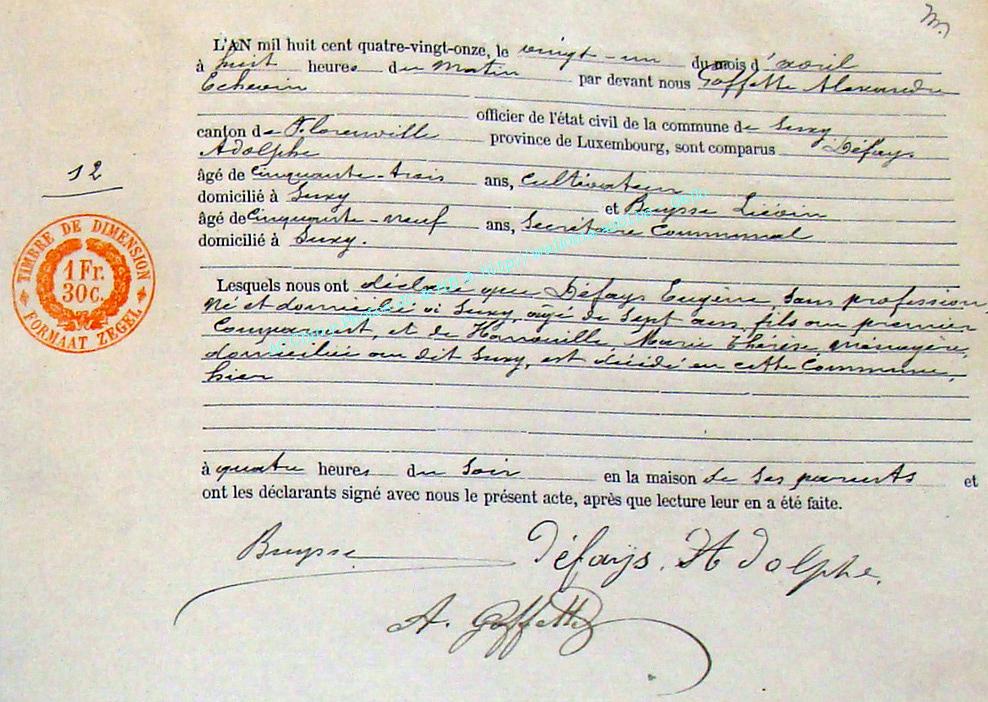 L'AN mil huit cent quatre-vingt-onze, le vingt-un du mois d'avril
à huit heures du matin par devant nous Goffette Alexandre
Echevin
officier de l'état civil de la commune de Suxy
canton de Florenville province de Luxembourg, sont comparus Défays
Adolphe
12
âgé de Cinquante-trois ans, Cultivateur
domicilié à Suxy et Buysse Liévin
âgé de Cinquante-neuf ans, Secrétaire Communal
domicilié à Suxy.
TIMBRE DE DIMENSION
1 Fr.
30c.
FORMAAT ZEGEL
Lesquels nous ont déclaré que Défays Eugène, sans profession,
né et domicilié à Suxy, âgé de sept ans, fils au premier
Comparant, et de Marie Thérèse, Ménagère,
domiciliée au dit Suxy, est décédé en cette Commune,
hier
à quatre heures du soir en la maison de ses parents et
ont les déclarants signé avec nous le présent acte, après que lecture leur en a été faite.
Buysse Défays. Adolphe.
A. Goffette